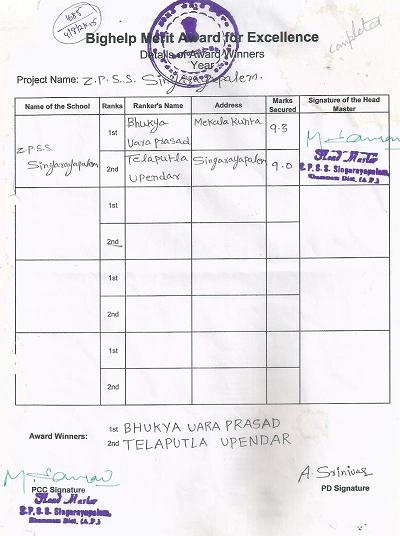 completed
Bighelp Merit Award for Excellence
Details of Award Winners
Year
Project Name: Z.P.S.S. Singarayapalem.
Name of the School Ranks Ranker's Name Address Marks Secured Signature of the Head Master
Z.P.S.S. Singarayapalem 1st Bhukya Vara prasad Mekala Kunta 9.3
2nd Telaputla Upendar Singarayapalem 9.0
Head Master
Z.P.S.S. Singarayapalem,
Khammam Dist, (A.P.)
1st
2nd
1st
2nd
1st
2nd
Award Winners: 1st BHUKYA VARA PRASAD
2nd TELAPUTLA UPENDAR
A. Srinivas
PCC Signature PD Signature
Head Master
Z.P.S.S. Singarayapalem,
Khammam Dist, (A.P.)